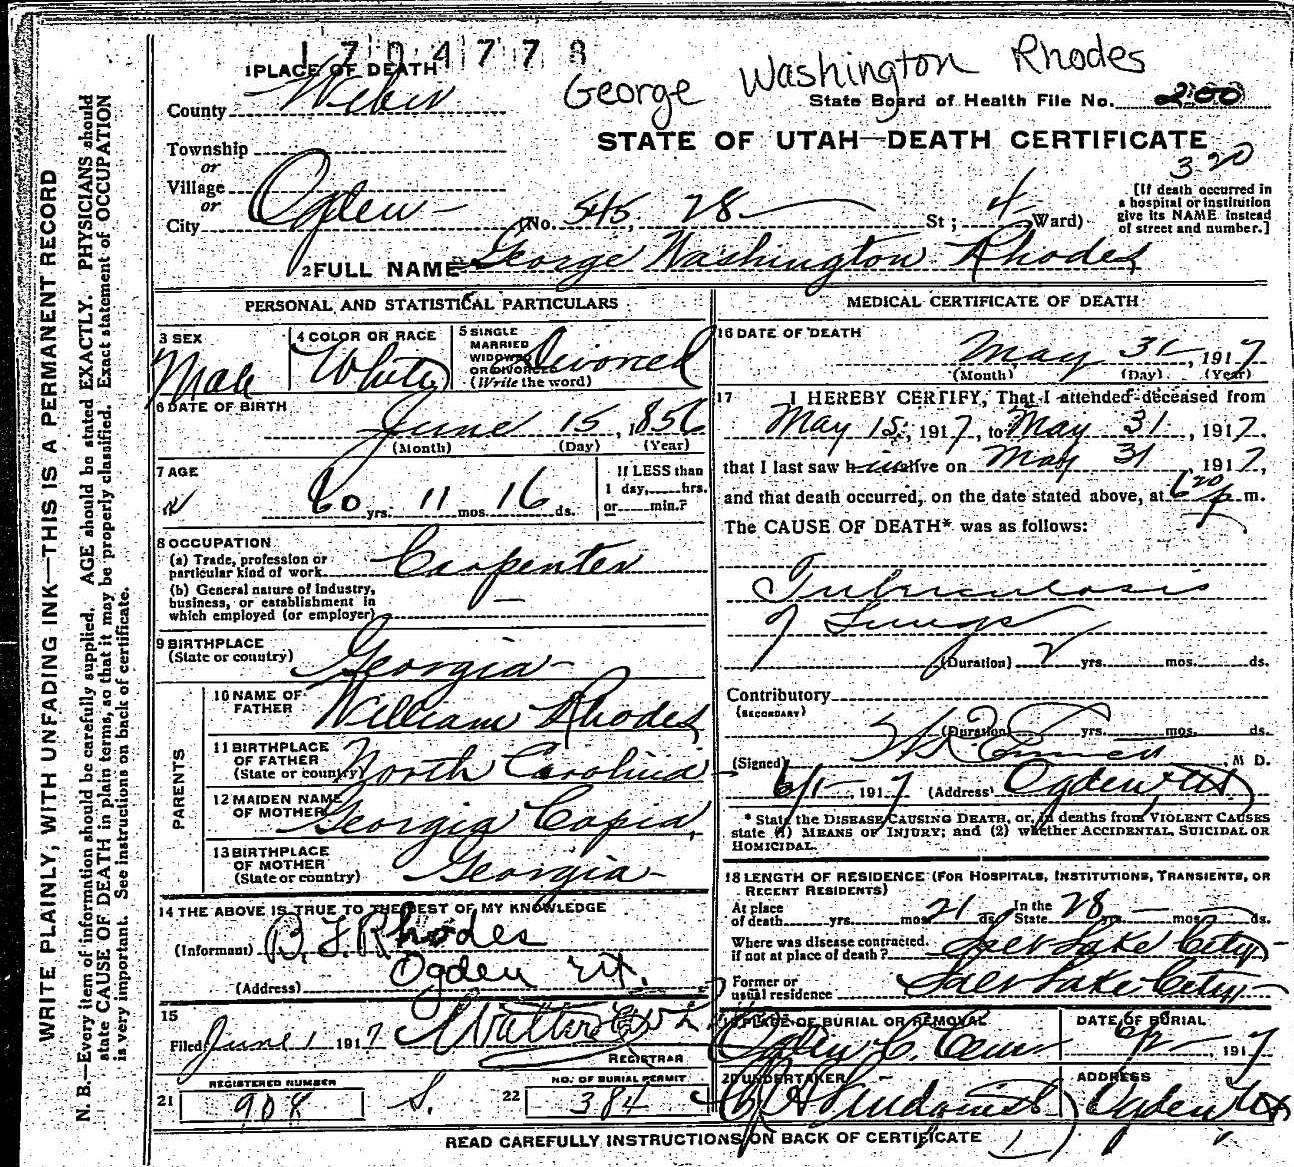 1704778
George Washington Rhodes
1 PLACE OF DEATH
County Weber
State Board of Health File No. 200
STATE OF UTAH—DEATH CERTIFICATE
320
Township
or
Village
or
City Ogden (No. 545 28 St; 4 Ward)
[If death occurred in a hospital or institution give its NAME instead of street and number.]
2 FULL NAME George Washington Rhodes
PERSONAL AND STATISTICAL PARTICULARS
3 SEX Male
4 COLOR OR RACE White
5 SINGLE MARRIED WIDOWED OR DIVORCED (Write the word) Divorced
6 DATE OF BIRTH
June 15, 1856
(Month) (Day) (Year)
7 AGE
60 yrs. 11 mos. 16 ds.
If LESS than 1 day, hrs. or min.?
8 OCCUPATION
(a) Trade, profession or particular kind of work Carpenter
(b) General nature of Industry, business, or establishment in which employed (or employer) —
9 BIRTHPLACE (State or country) Georgia
PARENTS
10 NAME OF FATHER William Rhodes
11 BIRTHPLACE OF FATHER (State or country) North Carolina
12 MAIDEN NAME OF MOTHER Georgia Capia
13 BIRTHPLACE OF MOTHER (State or country) Georgia
14 THE ABOVE IS TRUE TO THE BEST OF MY KNOWLEDGE
(Informant) B. F. Rhodes
(Address) Ogden Ut.
15
Filed June 1 1917
REGISTRAR
21 REGISTERED NUMBER 908
S.
22 NO. OF BURIAL PERMIT 384
MEDICAL CERTIFICATE OF DEATH
16 DATE OF DEATH
May 31, 1917
(Month) (Day) (Year)
17 I HEREBY CERTIFY, That I attended deceased from
May 15, 1917, to May 31, 1917,
that I last saw him alive on May 31, 1917,
and that death occurred, on the date stated above, at 6 20 p m.
The CAUSE OF DEATH* was as follows:
Tuberculosis
of Lungs
(Duration) 2 yrs. mos. ds.
Contributory
(SECONDARY)
(Duration) yrs. mos. ds.
(Signed) M D.
6/1 1917 (Address) Ogden, Ut
* State the DISEASE CAUSING DEATH, or, in deaths from VIOLENT CAUSES
state (1) MEANS OF INJURY; and (2) whether ACCIDENTAL, SUICIDAL OR
HOMICIDAL.
18 LENGTH OF RESIDENCE (FOR HOSPITALS, INSTITUTIONS, TRANSIENTS, OR RECENT RESIDENTS)
At place of death yrs. mos. 21 ds. In the State 28 yrs. — mos. ds.
Where was disease contracted, if not at place of death? Salt Lake City
Former or usual residence Salt Lake City
19 PLACE OF BURIAL OR REMOVAL Ogden C. Cem
DATE OF BURIAL 6/2 1917
20 UNDERTAKER
ADDRESS Ogden Ut
READ CAREFULLY INSTRUCTIONS ON BACK OF CERTIFICATE
WRITE PLAINLY, WITH UNFADING INK—THIS IS A PERMANENT RECORD
N. B.—Every item of information should be carefully supplied. AGE should be stated EXACTLY. PHYSICIANS should
state CAUSE OF DEATH in plain terms, so that it may be properly classified. Exact statement of OCCUPATION
is very important. See instructions on back of certificate.